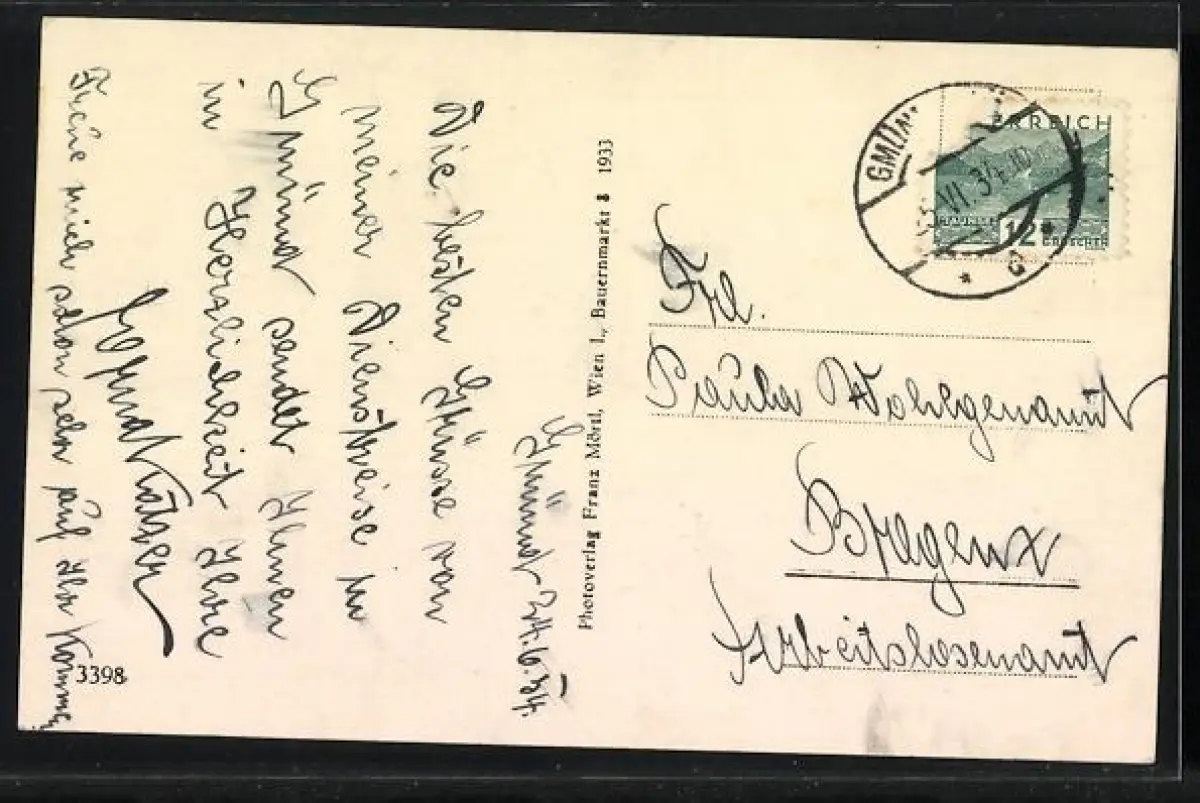 Gmünd 24.6.34.
Die besten Grüsse von
meiner Dienstreise in
Gmünd sendet Ihnen
in Herzlichkeit Ihre
Freue mich schon sehr auf Ihr Kommen
3398
Photoverlag Franz Mörtl, Wien I., Bauernmarkt 3 1933
GMÜN
VI. 34
ERREICH
12
GROSCHEN
Frl.
Paula Wohlgenannt
Bregenz
Arbeitslosenamt